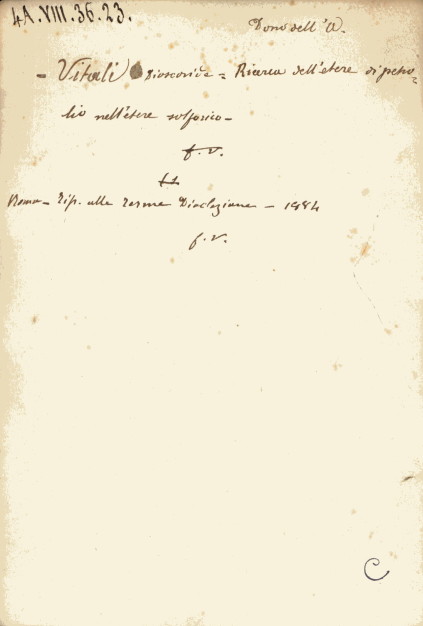 4A.VIII.36.23.
Dono dell'A.
= Vitali Dioscoride = Ricerca dell'etere di petro=
lio nell'etere solforico -
f. v.
Roma - Tip. alle Terme Diocleziane - 1884
f. v.
C